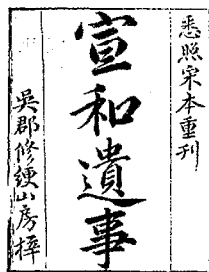 悉照宋本重刊
宣和遺事
吳郡修綆山房梓